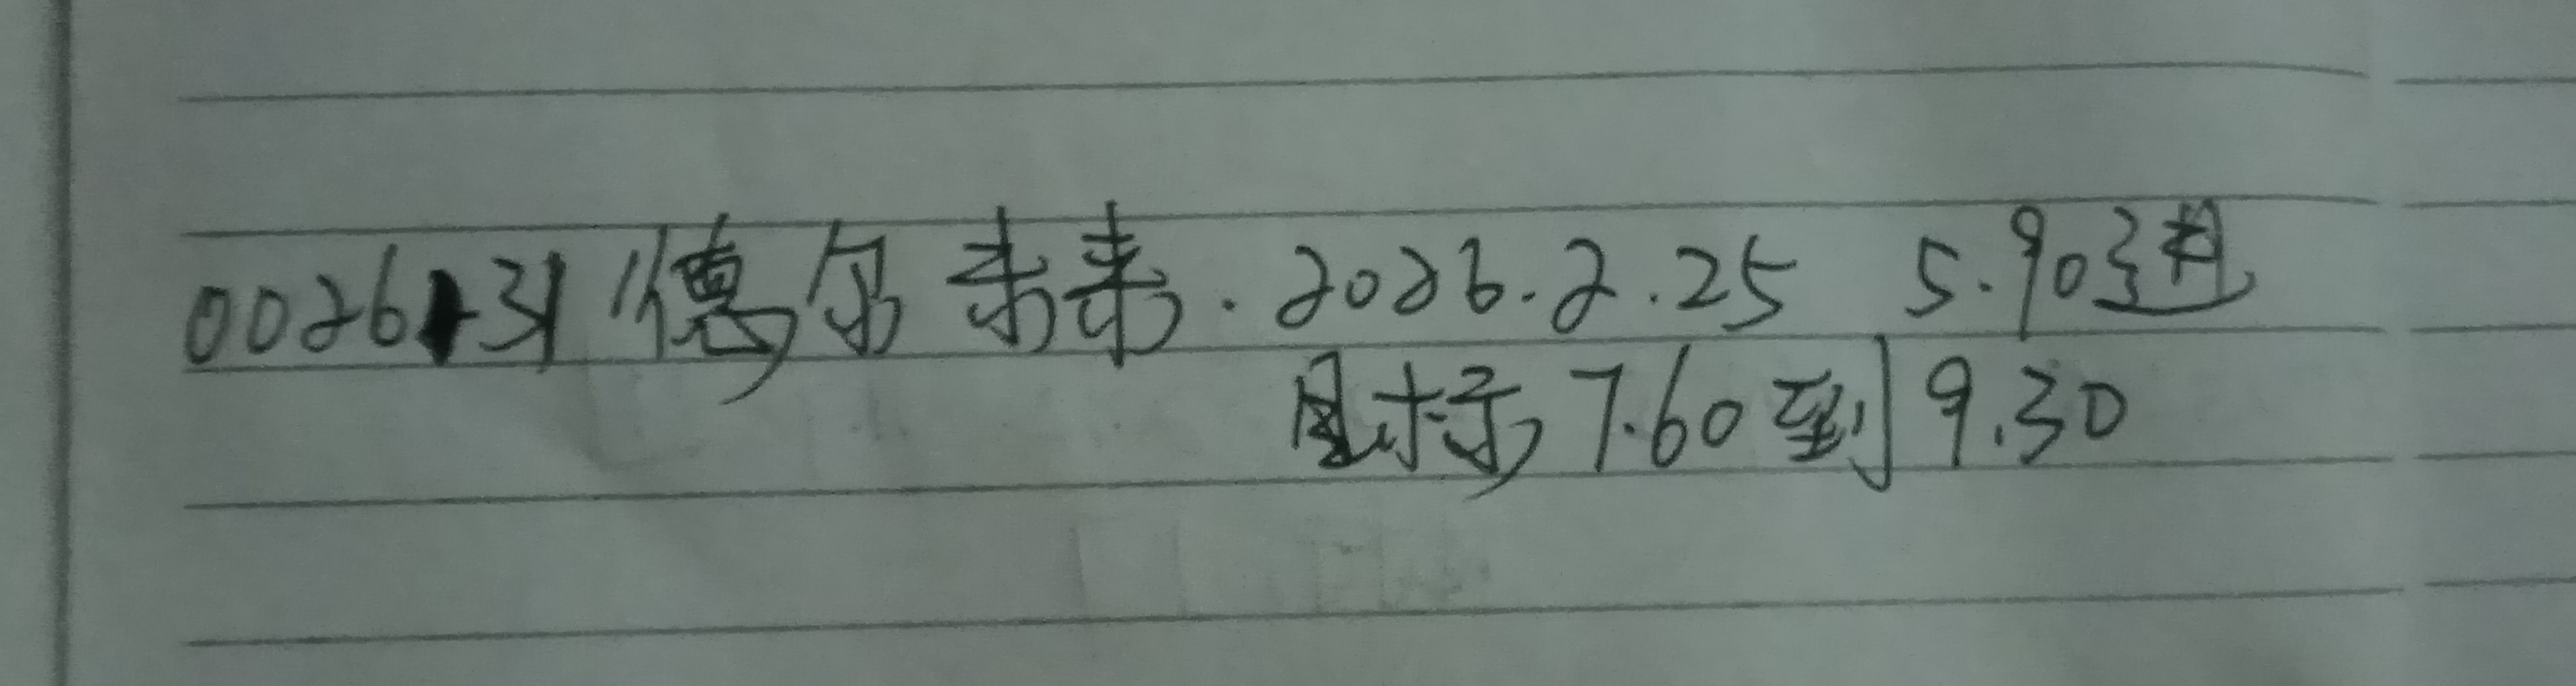 002631德尔未来.2026.2.25 5.90进
目标7.60到9.30